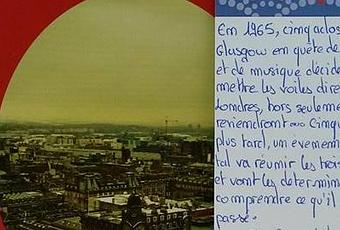 Em 1965, cinq ados
Glasgow en quête de
et de musique décide
mettre les voiles dire
Londres, hors seuleme
reviendront... Cinqu
plus tard, un évèneme
tal va réunir les trois
et vont les determin
comprendre ce qu'il
passé.